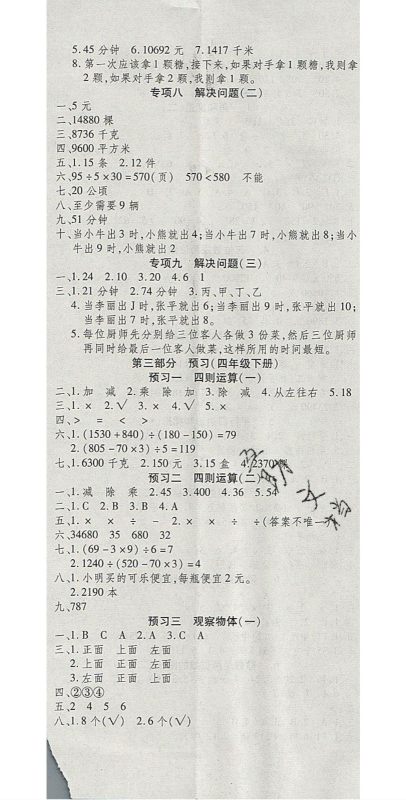 5.45 分钟 6.10692 元 7.1417 千米
8. 第一次应该拿 1 颗糖,接下来,如果对手拿 1 颗糖,我则拿
2 颗,如果对手拿 2 颗,我则拿 1 颗。
专项八 解决问题(二)
一、5 元
二、14880 棵
三、8736 千克
四、9600 平方米
五、1.15 条 2.12 件
六、95÷5×30=570(页) 570<580 不能
七、20 公顷
八、至少需要 9 辆
九、51 分钟
十、当小牛出 3 时,小熊就出 4;当小牛出 7 时,小熊就出 8;当小
牛出 9 时,小熊就出 2
专项九 解决问题(三)
一、1.24 2.10 3.20 4.6 1
三、1.21 分钟 2.74 分钟 3.丙、甲、丁、乙
4. 当李丽出 J 时,张平就出 6;当李丽出 9 时,张平就出 10;
当李丽出 7 时,张平就出 8。
5. 每位厨师先分别给三位客人各做 3 份菜,然后三位厨师
再同时给最后一位客人做菜,这样所用的时间最短。
第三部分 预习(四年级下册)
预习一 四则运算(一)
二、1.加 减 2.乘 除 加 3.除 减 4.从左往右 5.18
三、1.× 2.√ 3.× 4.√ 5.×
四、> = < >
六、1.(1530+840)÷(180-150)=79
2.(805-70×3)÷5=119
七、1.6300 千克 2.150 元 3.15 盒 4.2370 棵
预习二 四则运算(二)
一、1.减 除 乘 2.45 3.400 4.36 5.54
二、1.C 2.B 3.B 4.A
五、1.× × ÷ - 2.× × ÷ ÷(答案不唯一)
六、34680 35 680 32
七、1.(69-3×9)÷6=7
2.1240÷(520-70×3)=4
八、1.小明买的可乐便宜,每瓶便宜 2 元。
2.2190 本
九、787
预习三 观察物体(一)
一、1.B C A 2.A 3.C A
三、1.正面 上面 左面
2.上面 正面 左面
3.左面 正面 上面
四、②③④
五、2 4 5 6
八、1.8 个(√) 2.6 个(√)